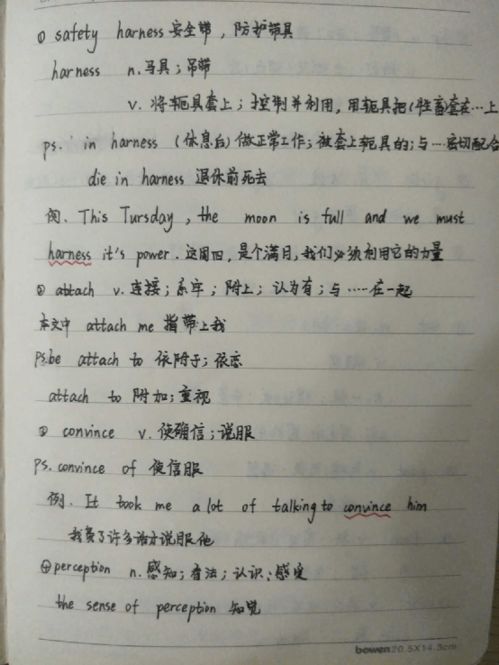 ① safety harness 安全带，防护带具
harness n.马具；吊带
v. 将轭具套上；控制并利用，用轭具把(牲畜套在…上
ps. in harness (休息后)做正常工作；被套上轭具的；与…密切配合
die in harness 退休前死去
例. This Tursday, the moon is full and we must
harness it's power. 这周四，是个满月，我们必须利用它的力量
② attach v. 连接；系牢；附上；认为有；与……在一起
本文中 attach me 指带上我
Ps.be attach to 依附于；依恋
attach to 附加；重视
③ convince v. 使确信；说服
PS. convince of 使信服
例. It took me a lot of talking to convince him
我费了许多话才说服他
④ perception n. 感知；看法；认识；感受
the sense of perception 知觉
bowen 20.5X14.3cm